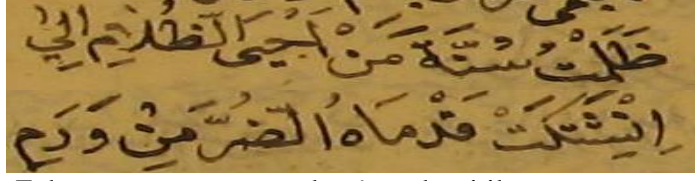 ظَلَمْتُ سُنَّةَ مَنْ اَحْيَى الظَّلَامَ اِلَى
اِنِ اشْتَكَتْ قَدَمَاهُ الضُّرَّ مِنْ وَرَمِ